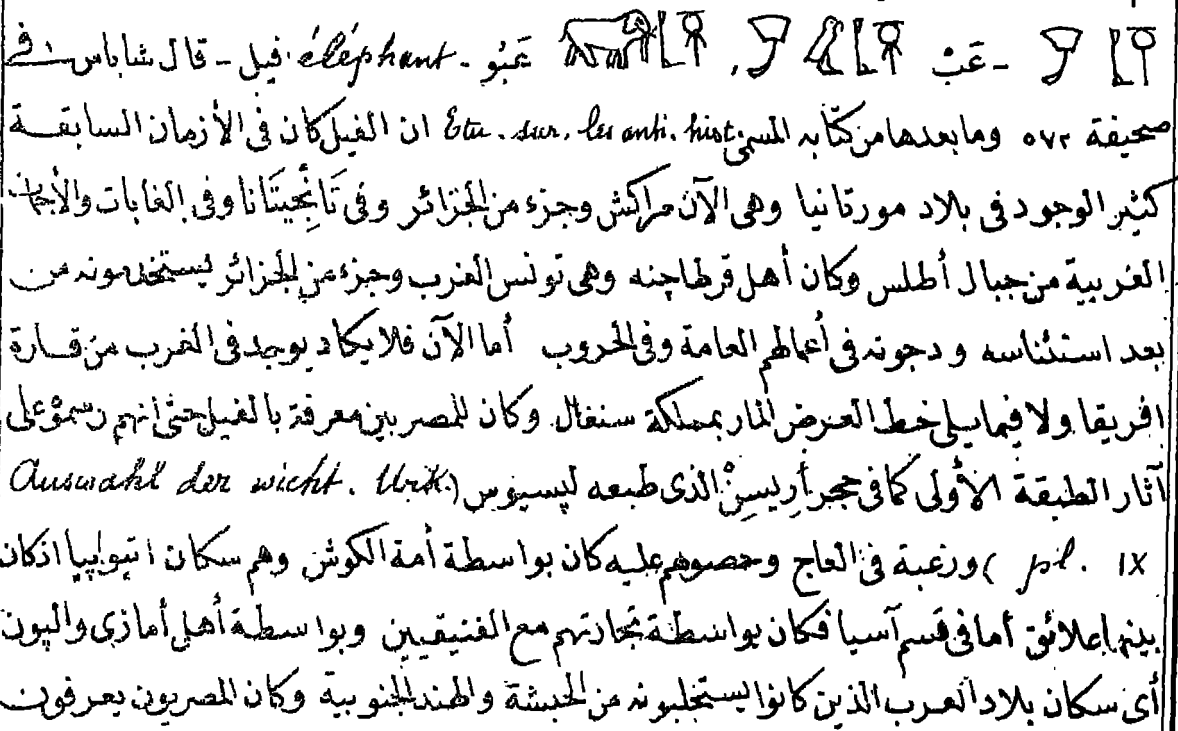 - عَبْ عَبُو - éléphant. فيل - قال شاباس في
صحيفة ٥٧٢ وما بعدها من كتابه المسمى Etu. sur. les anti. hist ان الفيل كان في الأزمان السابقة
كثير الوجود في بلاد مورتانيا وهى الآن مراكش وجزء من الجزائر وفى تَانْجِيتَانَا وفى الغابات والأجمات
الغربية من جبال أطلس وكان أهل قرطاجنه وهى تونس الغرب وجزء من الجزائر يستخدمونه من
بعد استئناسه ودجونه فى أعمالهم العامة وفى الحروب أما الآن فلا يكاد يوجد فى الغرب من قارة
افريقا ولا فيما يلى خط العرض المار بمملكة سنغال وكان للمصريين معرفة بالفيل حتى انهم رسموه على
آثار الطبقة الأولى كما فى حجر أريسِنْ الذى طبعه ليسيوس (Auswahl der wicht. Urk.
pl. IX) ورغبة فى العاج وحصولهم عليه كان بواسطة أمة الكوش وهم سكان اتيوبيا اذ كان
بينهما علائق أما فى قسم آسيا فكان بواسطة تجارتهم مع الفنيقيين وبواسطة أهل أمازى والپون
أى سكان بلاد العرب الذين كانوا يستجلبونه من الحبشة والهند الجنوبية وكان المصريون يعرفون